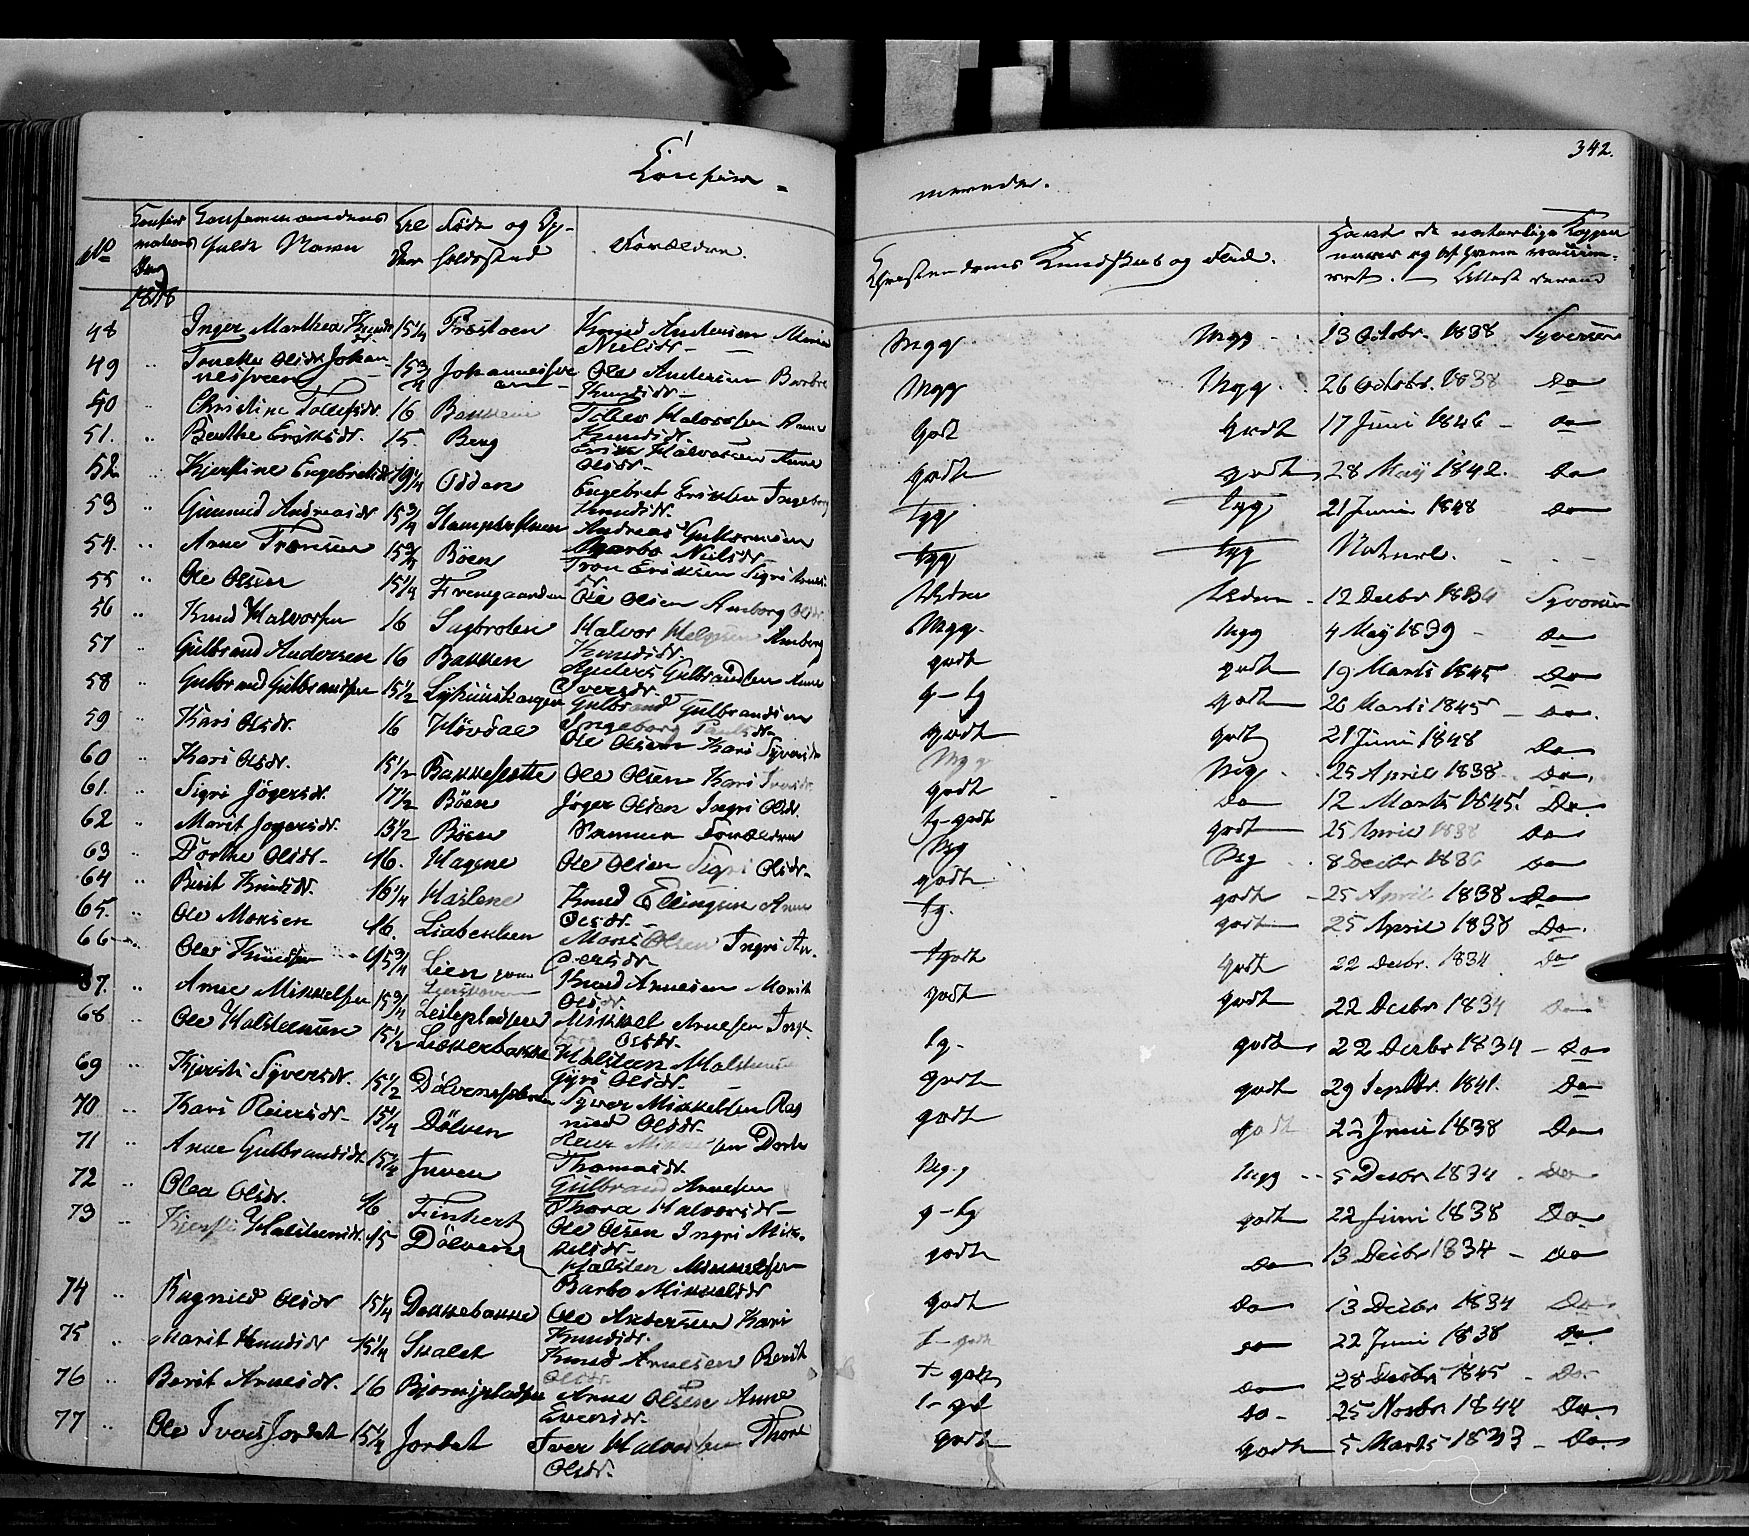 Confir=
merede.
342.
No
Confir
mations
Dag
1848
Confirmandens
fulde Navn
Al
der
Føde og Op-
holdssted
Forældre.
Christendoms Kundskab og Flid.
Havt de naturlige Kopper
Attest
48 Inger Marthea Knuds 15 1/4 Præstøen Knud Andersen
dr. Nielsdr.
Mgg Mgg 13 Octobr. 1838 Syversen
49 Olsdr. Johan- 15 3/4 Ole Andersen Barbro
Knudsdr.
Mgg Mgg. 26 Octobr. 1838 Do
50 Christine 16 Bakken Halvorsen Anne
Knudsdr.
godt godt 17 Juni 1846 Do
51. Berthe Eriksdr. 15. Berg Erik Halvorsen Anne
Olsdr.
godt godt 28 May 1842. Do
52 Kjerstine Engebretsdr 19 1/4 Odden Engebret Eriksen Ingeborg
Knudsdr.
tgg tgg 21 Juni 1848 Do
53 Andreasdr 15 3/4 Andreas
Barbo Nielsdr
tgg tgg
54. Arne Tronsen 15 Böen Tron Eriksen Sigri
12 Decbr 1834 Syversen
55 Ole Olsen 15 1/4 Ole Olsen Amborg Olsdr
Mgg. Mgg 4 May 1839 Do
56 Knud Halvorsen 16 Sagbroten Halvor Amborg
Knudsdr.
godt godt 19 Marts 1845 Do
57 Gulbrand Andersen 16 Bakken Anders Gulbrandsen Anne
Iversdr.
g-tg godt 26 Marts 1845 Do.
58 Gulbrand Gulbrandsen 15 1/2 Gulbrand Gulbrandsen
Ingeborg Paulsdr
godt godt 21 Juni 1848 Do
59 Kari Olsdr. 16 Hövdae Ole Olsen Kari Syversdr
Mgg Mg. 25 April 1838 Do.
60 Kari Olsdr. 15 1/2 Bakkeslette Ole Olsen Kari Iversdr
godt Do 12 Marts 1845. Do
61. Sigri Jögersdr. 17 1/2 Böen Jöger Olsen Ingri Olsdr.
tg-godt godt 25 April 1838 Do
62 Marit Jogersdr. 13 1/2 Böen Samme Forældre
Mg Mg 8 Decbr 1836 Do
63 Dorthe Olsdr 16. Hagene Ole Olsen Sigri Olsdr.
godt godt 25 April 1838 Do
64 Berit Knudsdr. 16 1/4 Haslene Knud Ellingsen Anne
Olsdr.
tg. godt 25 April 1838 Do.
65. Ole Monsen 16. Liabekken Mons Olsen Ingri An-
dersdr
tgodt godt 22 Decbr. 1834 Do
66 Ole Knudsen 15 3/4 Lien Knud Arnesen Marit
Olsdr.
godt godt 22 Decbr 1834 Do
67. Arne Mikkelsen 15 3/4 Mikkel Arnesen
Olsdr.
tg. godt 22 Decbr 1834 Do
68 Ole Halstensen 15 1/2 Lokkerbakke Halsten Halstensen
Gyri Olsdr.
godt godt 29 Septbr. 1841. Do
69 Kjersti Syversdr. 15 1/2 Syver Mikkelsen Rag
nild Olsdr.
godt godt 23 Juni 1838 Do
70 Kari Reiersdr 15 1/4 Dölven Reier Mikkelsen Dorthe
Thomasdr.
Mg.g Mgg 5 Decbr 1834 Do
71 Anne Gulbrandsdr 15 1/4 Juven Gulbrand Arnesen
Thora Halvorsdr
g-tg godt 22 Juni 1838 Do
72 Olea Olsdr. 16 Finhert Ole Olsen Ingri Mik-
kelsdr
godt Do 13 Decbr 1834 Do
73 Kjersti Halstensdr. 15 Dölven Halsten Mikkelsen
Barbo Mikkelsdr
godt Do 13 Decbr 1834 Do
74 Ragnild Olsdr 15 1/4 Dokkebakke Ole Andersen Kari
Knudsdr.
t-godt Do 22 Juni 1838 Do.
75 Marit Knudsdr 15 1/4 Skalet Knud Arnesen Berit
Olsdr.
t-godt Do 28 Decbr 1845 Do
76 Berit Arnesdr. 16 Björnepladsen Arne Olsen Anne
Eversdr.
t-gd Do 25 Novbr 1844 Do.
77 Ole Ivers Jordet 15 1/4 Jordet Iver Halvorsen Thore
Olsdr.
godt godt 5 Marts 1833 Do.